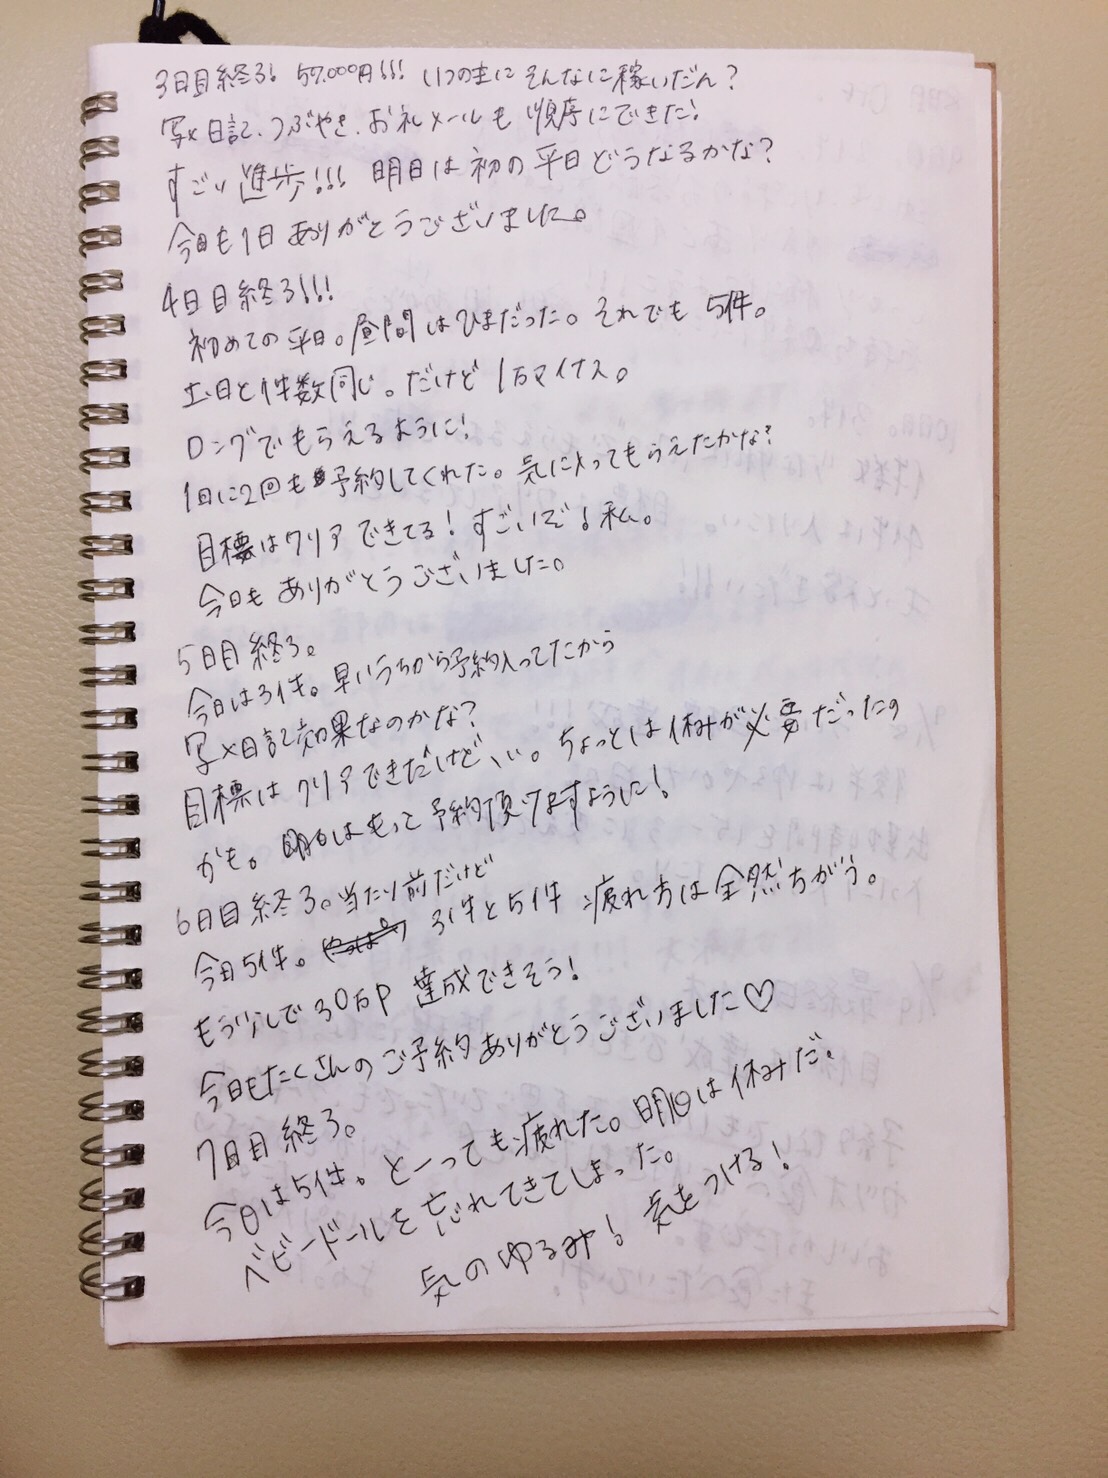 3日目終る! 57,000円!!! いつの間にそんなに稼いだん?
写メ日記、つぶやき、お礼メールも順序にできた!
すごい進歩!!! 明日は初の平日どうなるかな?
今日も1日ありがとうございました。
4日目終る!!!
初めての平日。昼間はひまだった。それでも5件。
土・日と件数同じ。だけど1万マイナス。
ロングでもらえるように!
1日に2回も予約してくれた。気に入ってもらえたかな?
目標はクリアできてる! すごいぞ! 私。
今日もありがとうございました。
5日目終る。
今日は3件。早いうちから予約入ってたから
写メ日記効果なのかな?
目標はクリアできだけどいい。ちょっとは休みが必要だったの
かも。明日はもっと予約頂けますように!
6日目終る。当たり前だけど
今日5件。 3件と5件 疲れ方は全然ちがう。
もう少しで30万P 達成できそう!
今日もたくさんのご予約ありがとうございました♡
7日目終る。
今日は5件。とーっても疲れた。明日は休みだ。
ベビードールを忘れてきてしまった。
気のゆるみ! 気をつける!